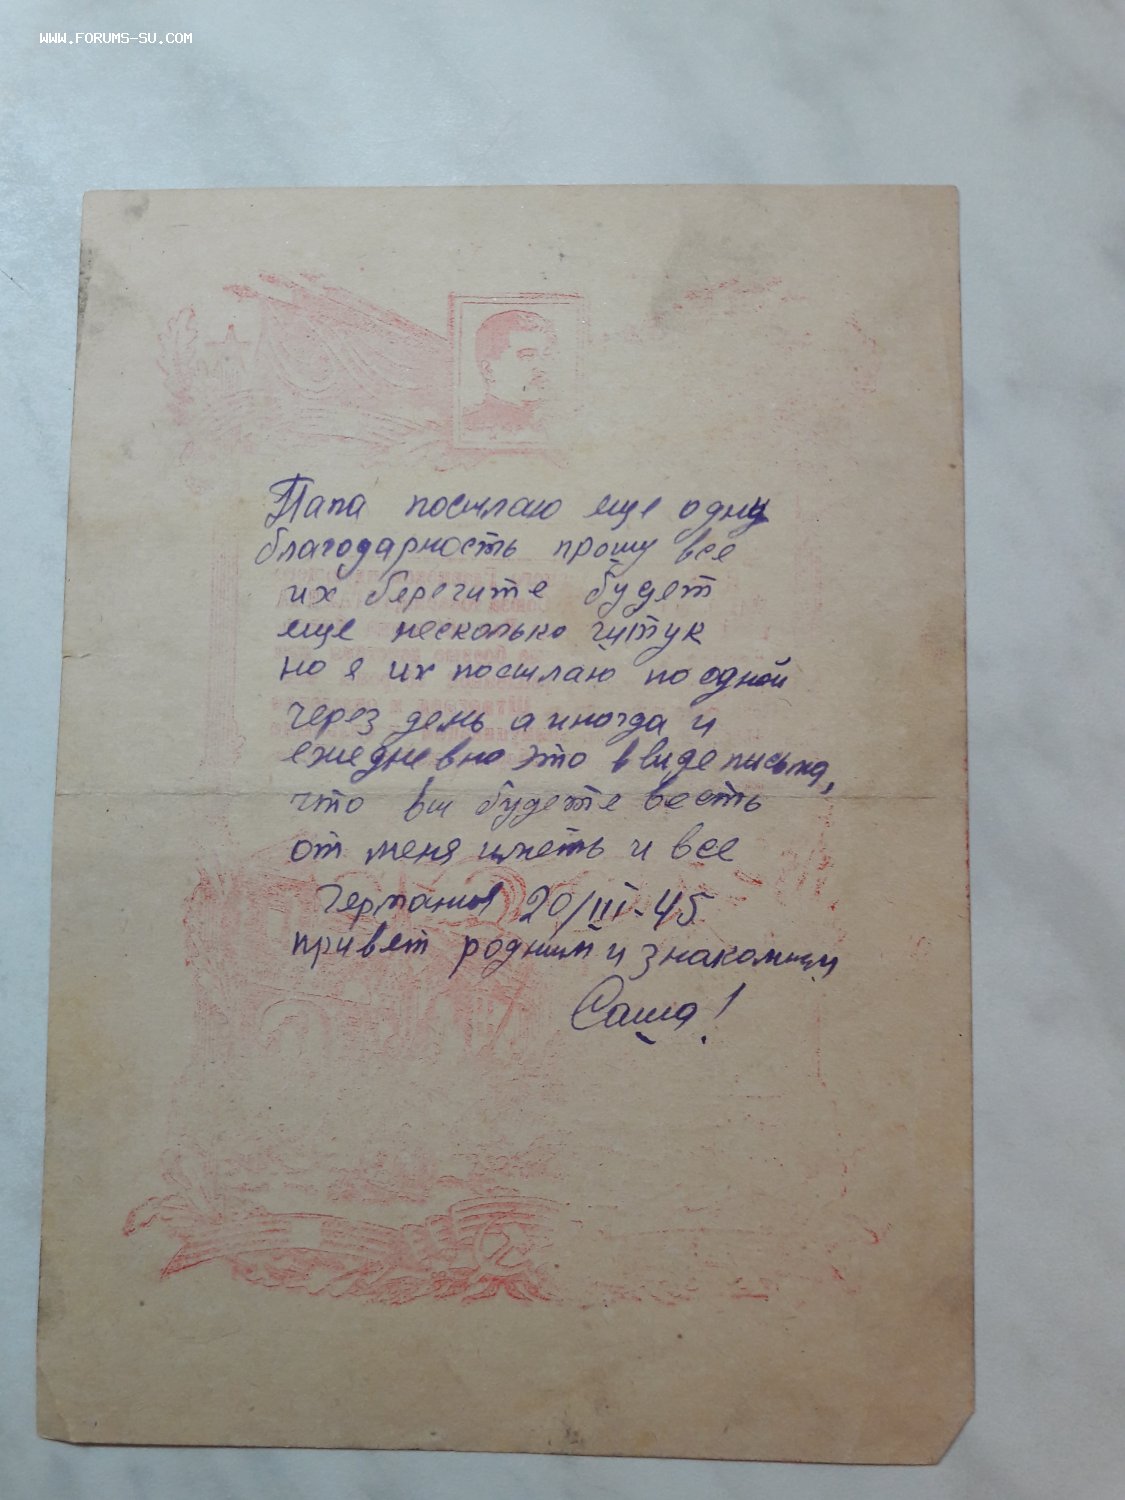 WWW.FORUMS-SU.COM
Папа посылаю еще одну
благодарность прошу все
их берегите будет
еще несколько штук
но я их посылаю по одной
через день а иногда и
ежедневно это в виде письма,
что вы будете весть
от меня иметь и все
Германия 20/III-45
привет родным и знакомым
Саша!